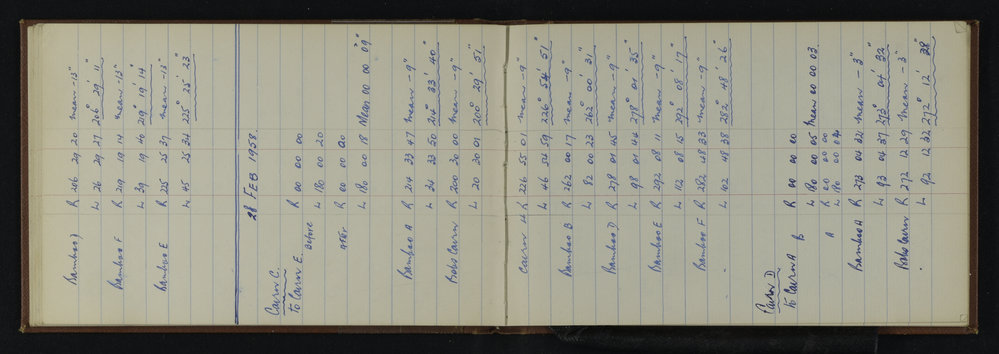 Bamboo D R 206 29 20 mean -13"
L 26 29 27 206° 29' 11"
Bamboo F R 219 19 14 mean -13"
L 39 19 40 219° 19' 14"
Bamboo E R 225 25 39 mean -13"
L 45 25 34 225° 25' 23"
28 FEB 1958
Cairn C.
to Cairn E. R 00 00 00
Before L 180 00 20
R 00 00 00
After L 180 00 18 Mean 00 00 09"
Bamboo A R 214 33 47 mean -9"
L 34 33 50 214° 33' 40"
Bobs Cairn R 200 30 00 mean -9"
L 20 30 01 200° 29' 51"
Cairn H R 226 55 01 mean -9"
L 46 54 59 226° 54' 51"
Bamboo B R 262 00 17 mean -9"
L 82 00 23 262° 00' 31"
Bamboo D R 278 01 45 mean -9"
L 98 01 44 278° 01' 35"
Bamboo E R 292 08 11 mean -9"
L 112 08 15 292° 08' 17"
Bamboo F R 282 48 33 mean -9"
L 102 48 38 282 48 26"
Cairn D
to Cairn A R 00 00 00
B L 180 00 05 Mean 00 00 03
R 00 00 00
A L 180 00 04
Bamboo A R 273 04 32 mean -3"
L 93 04 37 273° 04' 32"
Bobs Cairn R 272 12 29 mean -3"
L 92 12 32 272° 12' 28"